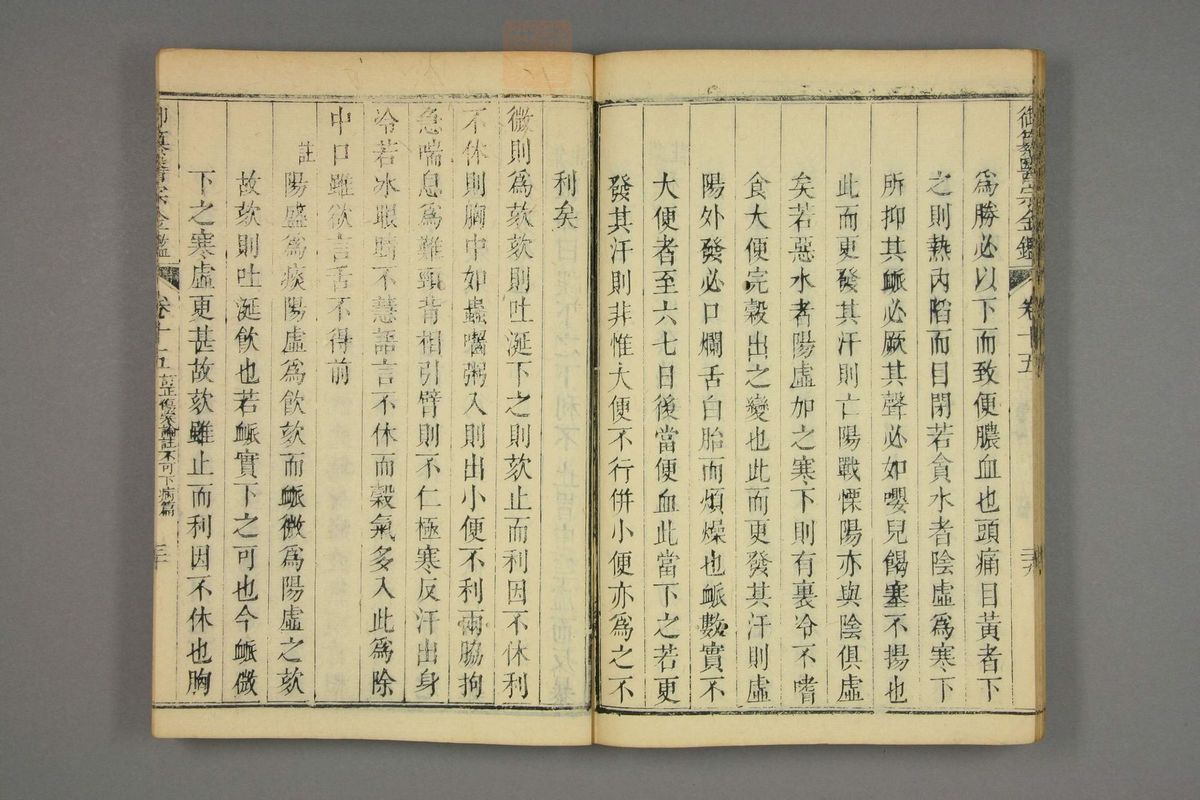 御纂醫宗金鑑 卷十五
爲勝必以下而致便膿血也頭痛目黃者下
之則熱內陷而目閉若貪水者陰虛爲寒下
所抑其脈必厥其聲必如嚶兒餲塞不揚也
此而更發其汗則亡陽戰慄陽亦與陰俱虛
矣若惡水者陽虛加之寒下則有裏冷不嗜
食大便完穀出之變也此而更發其汗則虛
陽外發必口爛舌白胎而煩燥也脈數實不
大便者至六七日後當便血此當下之若更
發其汗則非惟大便不行併小便亦爲之不
利矣
微則爲欬欬則吐涎下之則欬止而利因不休利
不休則胸中如蟲嚙粥入則出小便不利兩脇拘
急喘息爲難頸背相引臂則不仁極寒反汗出身
冷若冰眼睛不慧語言不休而穀氣多入此爲除
中口雖欲言舌不得前
註陽盛爲痰陽虛爲飲欬而脈微爲陽虛之欬
故欬則吐涎飲也若脈實下之可也今脈微
下之寒虛更甚故欬雖止而利因不休也胸
御纂醫宗金鑑 卷十五 訂正傷寒論註不可下病篇